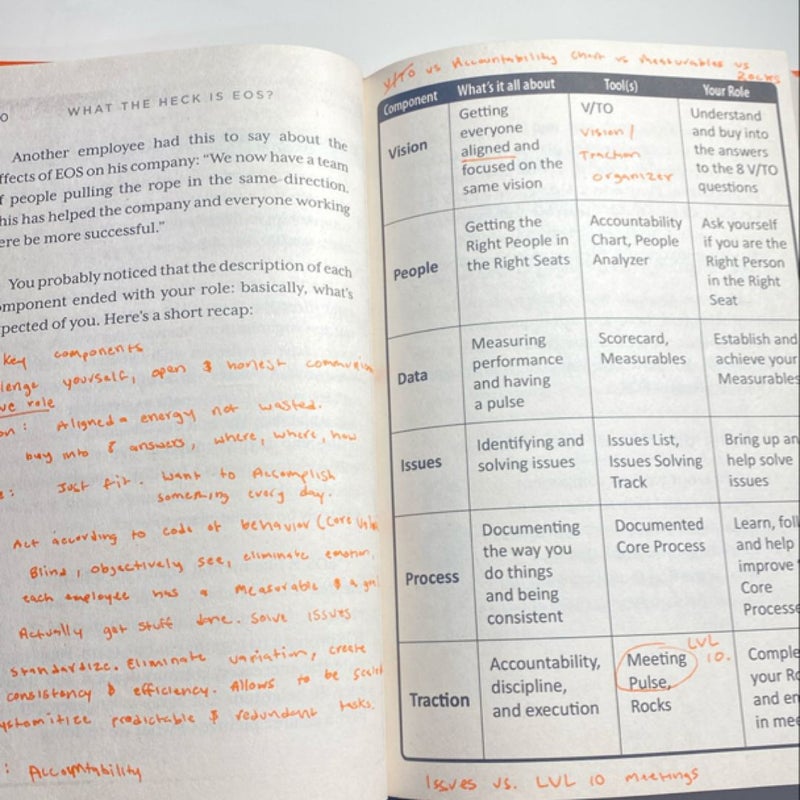 WHAT THE HECK IS EOS?
Another employee had this to say about the
ffects of EOS on his company: “We now have a team
f people pulling the rope in the same direction.
his has helped the company and everyone working
ere be more successful.”
You probably noticed that the description of each
omponent ended with your role: basically, what’s
pected of you. Here’s a short recap:
key components
lenge yourself, open & honest
ve role
on: Aligned a energy not wasted.
buy into 8 answers, where, where, how
e: Just fit. Want to Accomplish
something every day.
Act according to code of behavior (core
Blind, objectively see, eliminate emotion,
each employee has a measurable & a
Actually get stuff done. Solve issues
Standardize. Eliminate variation, create
consistency & efficiency. Allows to be
ystomitize predictable & redundant tasks.
: Accountability
V/TO vs Accountability chart vs Measurables vs
Rocks
Component What’s it all about Tool(s) Your Role
Vision
Getting
everyone
aligned and
focused on the
same vision
V/TO
Vision/
Traction
organizer
Understand
and buy into
the answers
to the 8 V/TO
questions
People
Getting the
Right People in
the Right Seats
Accountability
Chart, People
Analyzer
Ask yourself
if you are the
Right Person
in the Right
Seat
Data
Measuring
performance
and having
a pulse
Scorecard,
Measurables
Establish and
achieve your
Measurables
Issues
Identifying and
solving issues
Issues List,
Issues Solving
Track
Bring up an
help solve
issues
Process
Documenting
the way you
do things
and being
consistent
Documented
Core Process
Learn, foll
and help
improve
Core
Processe
Traction
Accountability,
discipline,
and execution
LVL
10.
Meeting
Pulse,
Rocks
Comple
your Ro
and en
in mee
Issues vs. LVL 10 meetings